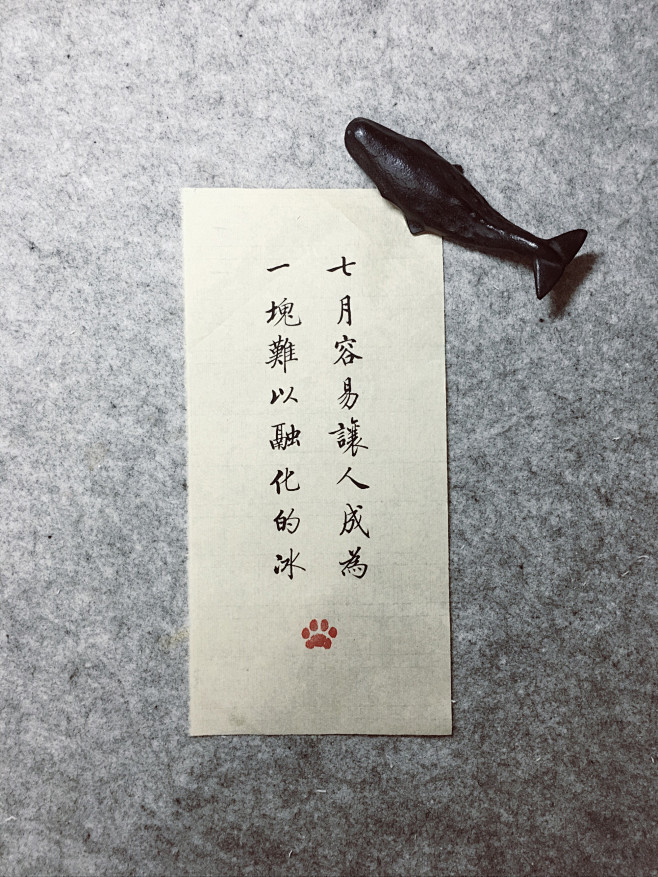 七月容易讓人成為
一塊難以融化的冰